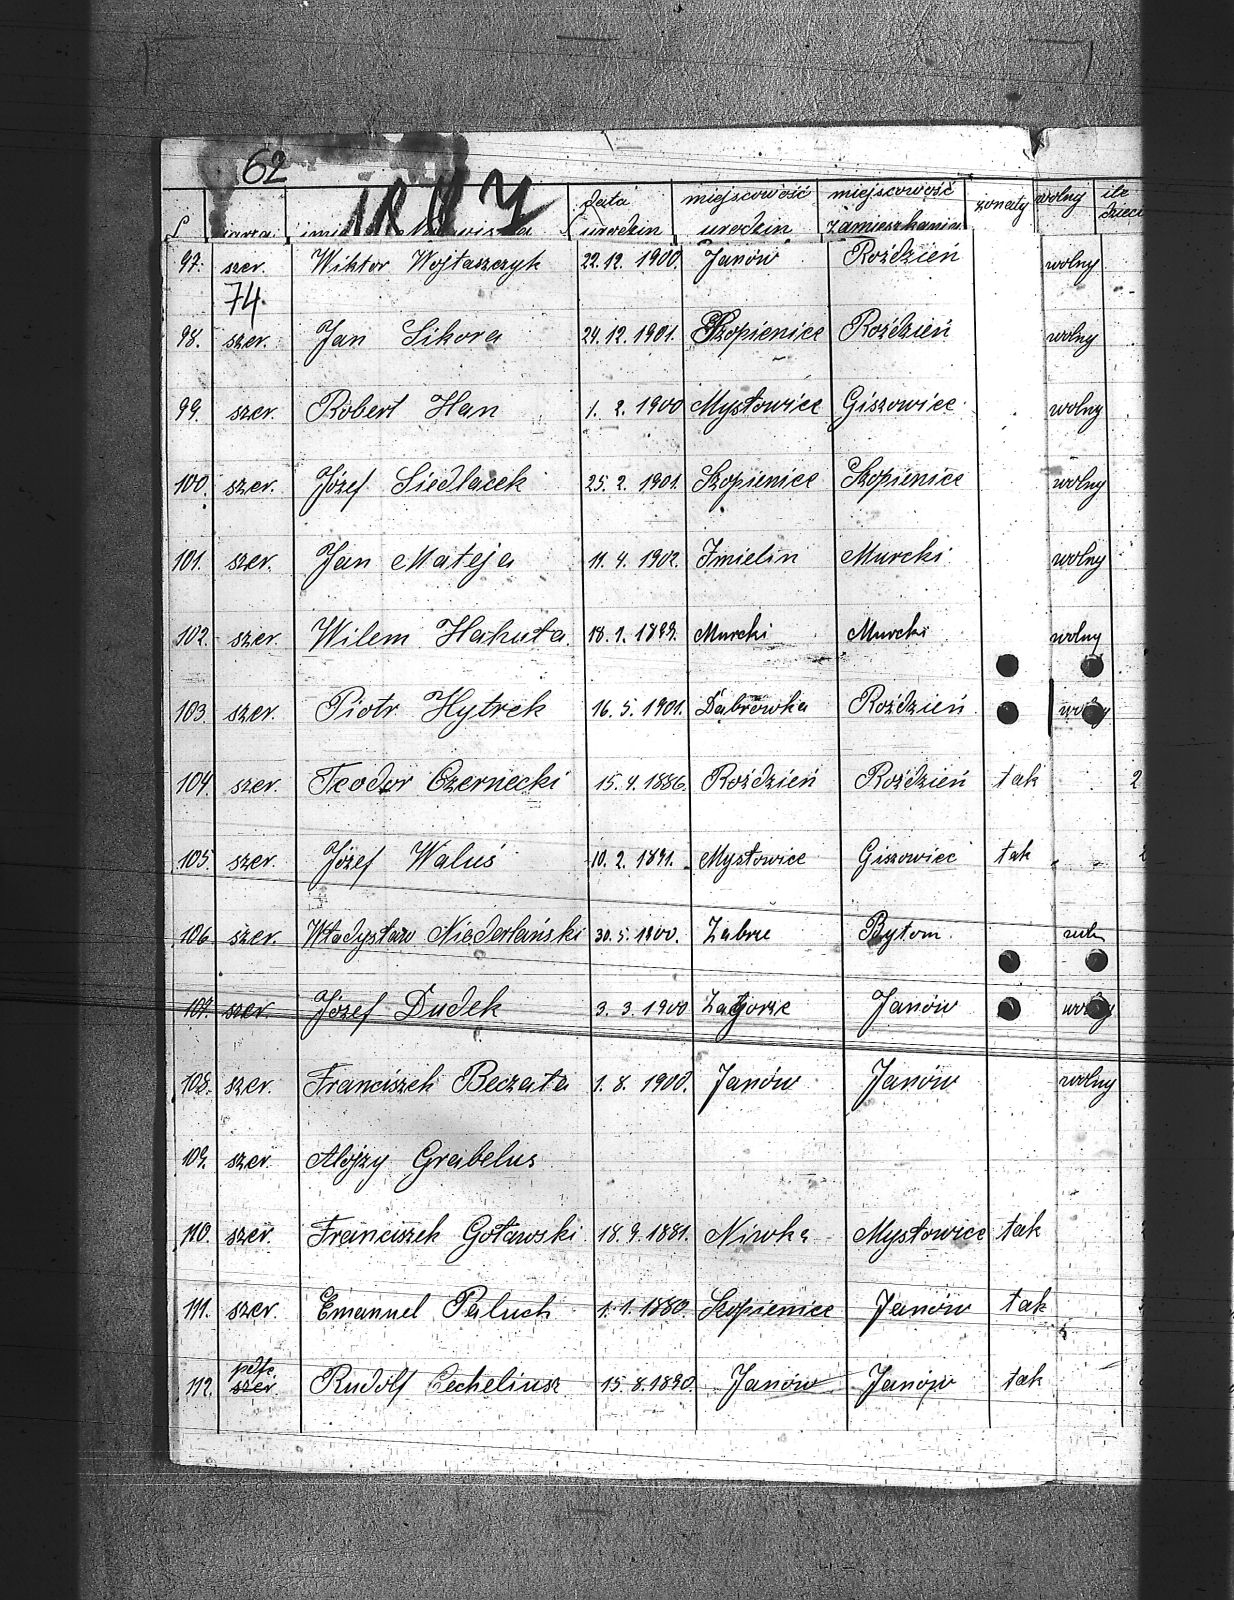 62
data miejscowość miejscowość żonaty wolny ile
urodzin urodzin zamieszkania dzieci
97. szer. Wiktor Wojtaszczyk 22.12.1900. Janów Roździeń wolny
74.
98. szer. Jan Sikora 24.12.1901. Szopienice Roździeń wolny
99. szer. Robert Han 1.2.1900 Mysłowice Giszowiec wolny
100. szer. Józef Siedlacek 25.2.1901. Szopienice Szopienice wolny
101. szer. Jan Mateja 11.4.1902. Imielin Murcki wolny
102. szer. Wilem Hakuta 18.1.1899. Murcki Murcki wolny
103 szer. Piotr Hytrek 16.5.1901. Dąbrówka Roździeń wolny
104. szer. Teodor Czernecki 15.4.1886. Roździeń Roździeń tak 2
105. szer. Józef Waluś 10.2.1891. Mysłowice Giszowiec tak
106. szer. Władysław Niederlański 30.5.1900. Zabrze Bytom
107. szer. Józef Dudek 3.3.1900 Zagorze Janów wolny
108. szer. Franciszek Beczała 1.8.1900. Janów Janów wolny
109. szer. Alojzy Grabelus
110. szer. Franciszek Goławski 18.9.1881. Niwka Mysłowice tak
111. szer. Emanuel Paluch 1.1.1880. Szopienice Janów tak
112. szer. Rudolf Cecheliusz 15.8.1890. Janów Janów tak